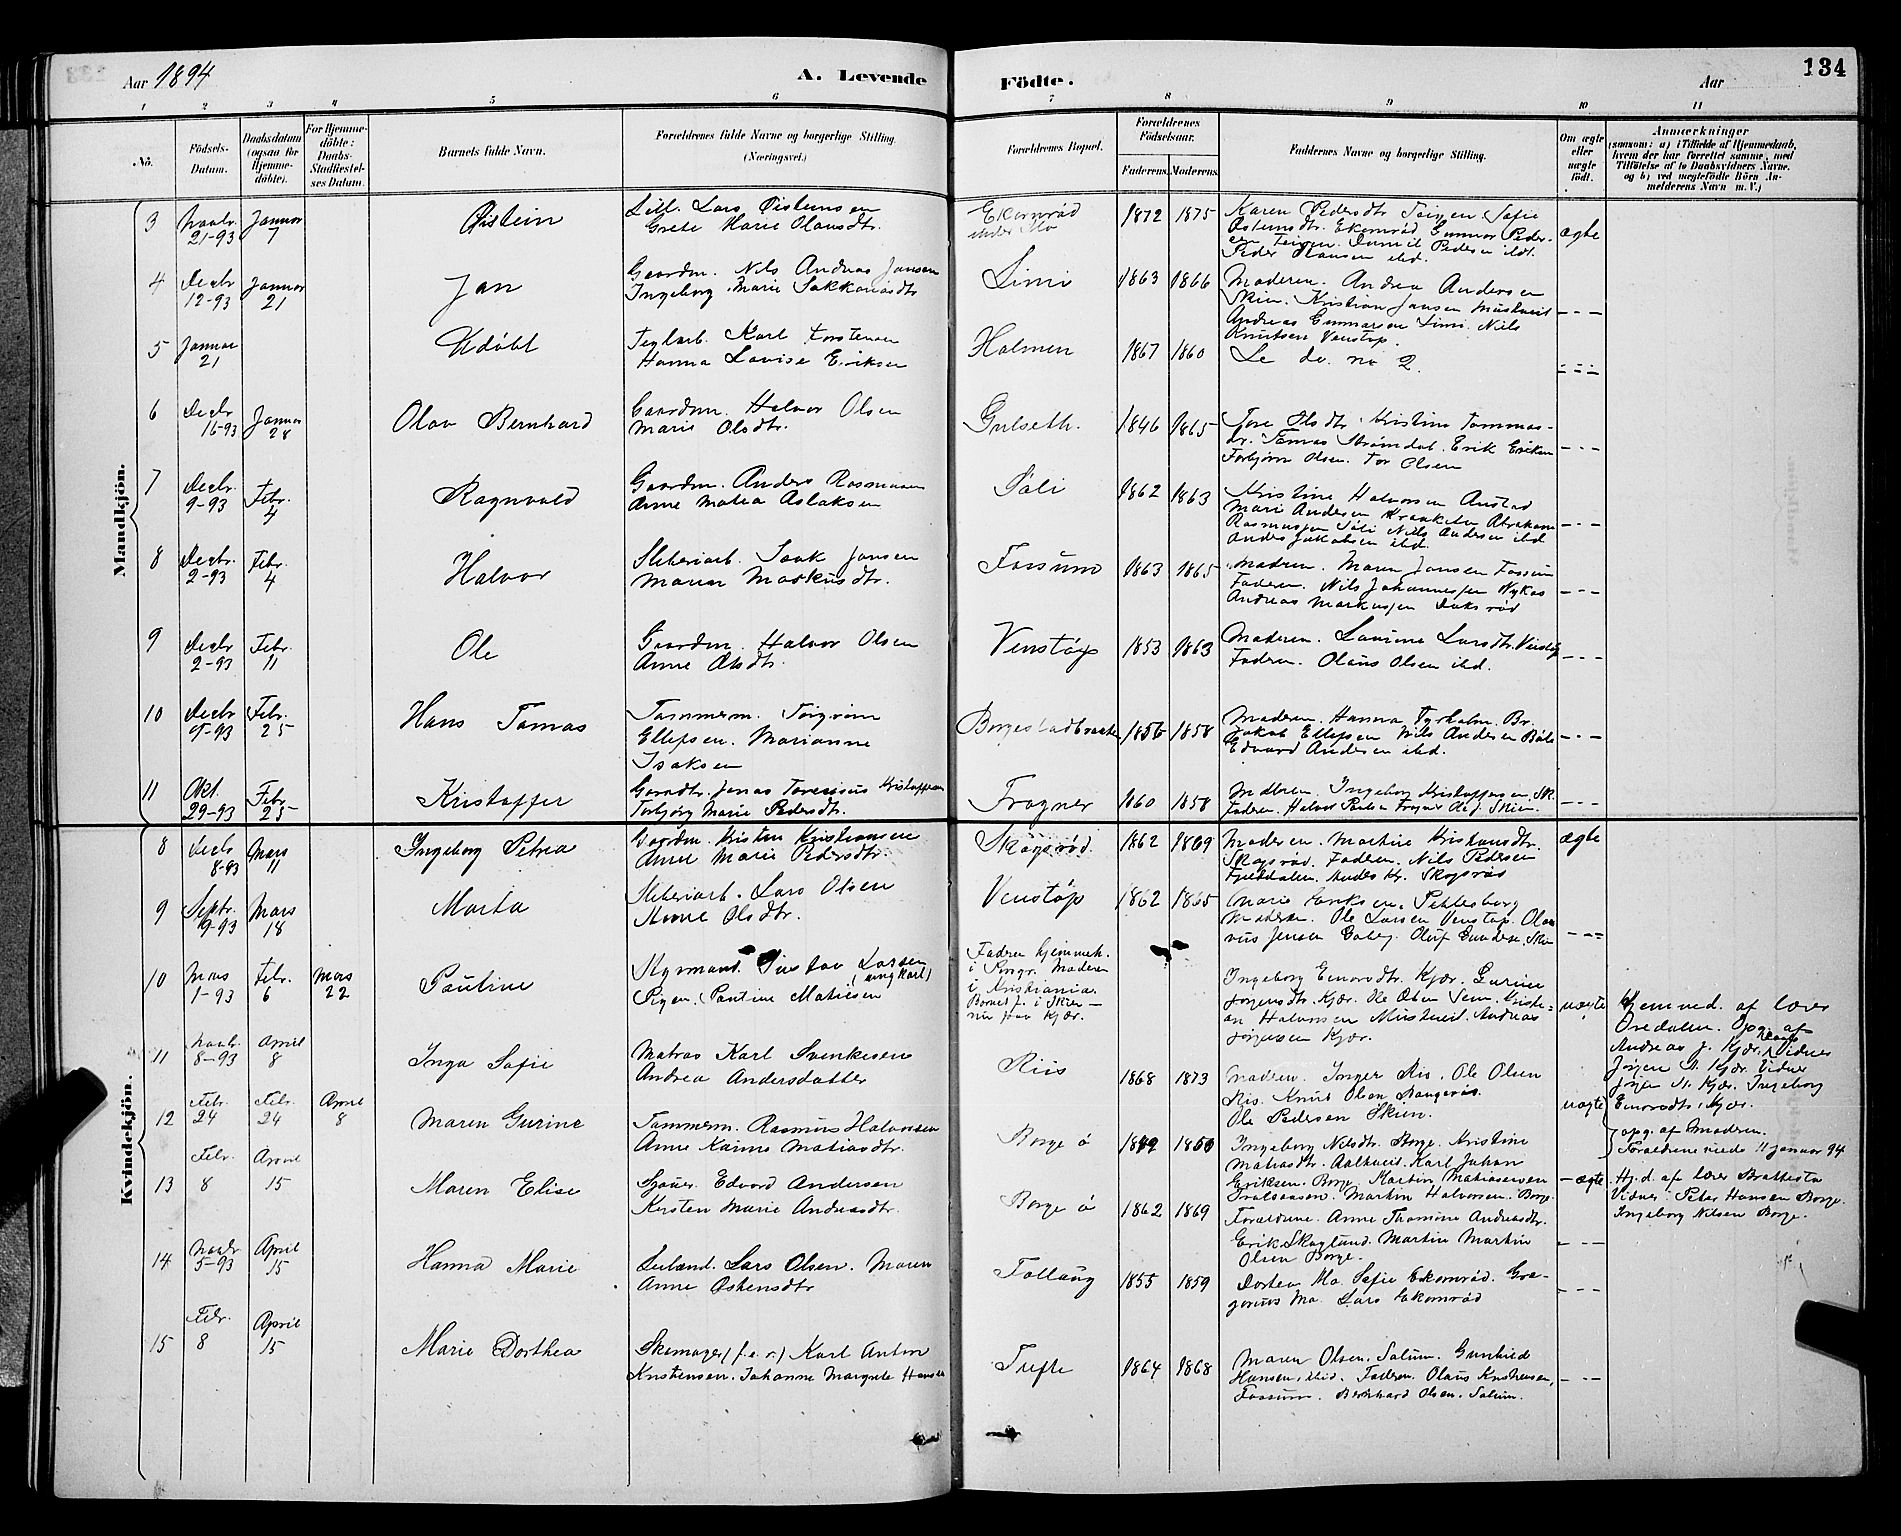 Aar 1894
A. Levende
Födte.
Aar
134
1 2 3 4 5 6 7 8 9 10 11
No.
Födsels-Datum.
Daabsdatum (ogsaa for Hjemme-döbte).
For Hjemme-döbte: Daabs-Stadfæstel-ses Datum.
Barnets fulde Navn.
Forældrenes fulde Navne og borgerlige Stilling. (Næringsvei.)
Forældrenes Bopæl.
Forældrenes Födselsaar.
Faderens. Moderens.
Faddernes Navne og borgerlige Stilling.
Om ægte eller uægte födt.
Anmærkninger
(saasom: a) i Tilfælde af Hjemmedaab, hvem der har forrettet samme, med Tilföielse af to Daabsvidners Navne, og b) ved uægtefödte Börn An-melderens Navn m. V.)
Mandkjön.
3 Novbr. 21-93 Januar 7 Øistein
Lars Øistensen
Grete Marie Olausdtr.
Ekornrød
under Mo
1872 1875
Karen Pedersdtr Teigen Sofie
Østensdtr. Ekornrød Gunnar Peder-
sen Teigen. Daniel Pedersen ibd.
Peder Hansen ibd.
ægte
4 Decbr 12-93 Januar 21 Jan
Gaardm. Nils Andreas Jansen
Ingeborg Marie Sakkariasdtr
Limi
1863 1866
Moderen. Andrea Andersen
Skien. Kristian Jansen Mustveit
Andreas Gunnarsen Limi. Nils
Knutsen Venstøp.
- - -
5 Januar 21 Udøbt
Teglarb. Karl Torstensen
Hanna Lovise Eriksen
Holmen
1867 1860
Se dv. no 2.
- - -
6 Decbr 16-93 Januar 28 Olav Bernhard
Gaardm. Halvor Olsen
Marie Olsdtr.
Gulseth.
1846 1865
Tone Olsdtr Kristine Tommas-
dr. Tomas Strømdal. Erik Eriksen
Torbjørn Olsen. Tor Olsen
- - -
7 Decbr. 9-93 Febr. 4 Ragnvald
Gaardm. Anders Rasmussen
Anne Matea Aslaksen
Søli
1862 1863
Kristine Halvorsen Austad
Marie Andersen Abraham
Rasmussen Søli Nils Andersen ibd
Anders Jakobsen ibd.
- - -
8 Decbr. 2-93 Febr. 4 Halvor
Sliberiarb. Isak Jansen
Maren Markusdtr.
Fossum
1863 1865
Moderen. Maren Jansen Fossum
Faderen. Nils Johannessen Nykas
Andreas Markussen
- - -
9 Decbr 2-93 Febr. 11 Ole
Gaardm. Halvor Olsen
Anne Olsdtr.
Venstøp
1853 1863
Moderen. Laurine Larsdtr. Venstøp
Faderen. Olaus Olsen ibd.
- - -
10 Decbr 9-93 Febr. 25 Hans Tomas
Tømmerm. Torgrim
Ellefsen. Marianne
Isaksen
Borgestadbakken
1856 1858
Moderen. Hanna Tyrholm. Br.
Jakob Ellefsen Nils Andersen Bøle
Edvard Andersen ibd.
- - -
11 Okt. 29-93 Febr. 25 Kristoffer
Jonas Kristoffersen
Torbjørg Marie Pedersdtr.
Frogner
1860 1858
Moderen. Ingeborg Kristoffersen, Sk.
Faderen. Halvor Frogner Skien.
- - -
Kvindekjön.
8 Decbr 8-93 Mars 11 Ingeborg Petrea
Gaardm. Kristen Kristiansen
Anne Marie Pedersdtr.
Skogsrød.
1862 1869
Moderen. Martine Kristiansdtr.
Skogsrød. Faderen. Nils Pedersen
Fjelddalen. Anders Kr. Skogsrød
ægte
9 Septr. 9-93 Mars 18 Marta
Sliberiarb. Lars Olsen
Anne Olsdtr.
Venstøp
1862 1865
Marie Eriksen.
Moderen. Ole Larsen Venstøp. Ola-
vus Jensen Oluf Gundersen. Ski
- - -
10 Mars 1-93 Febr. 6 Mars 22 Pauline
Styrmand Gustav Larsen
(ungkarl)
Pigen. Pauline Matiesen
Faderen hjemmeh.
i Moderen
i Kristiania.
Barnet f. i Skien —
nu paa Kjær.
Ingeborg Einersdtr. Kjær. Gurine
Jørgensdtr. Kjær. Ole Olsen Kristi-
an Halvorsen Mustveit. Andreas
Jørgensen Kjær.
uægte
Hjemmed. af lærer
Andreas J. Kjær.
Jørgen Kjær. Ingeborg
Einersdtr. Kjær.
11 Novbr. 8-93 April 8 Inga Sofie
Matros Karl Svenkesen
Andrea Andersdatter
Riis
1868 1873
Moderen. Inger Ris. Ole Olsen
Ris. Knut Olsen
Ole Pedersen Skien.
uægte
opg. af Moderen.
Forældrene viede 11 januar 94
12 Febr. 24 Febr. 24 April 8 Maren Gurine
Tømmerm. Rasmus Halvorsen
Anne Karine Matiasdtr.
Borge ø
1849 1850
Ingeborg Nilsdtr. Borge. Kristine
Matiasdtr. Aaltveit. Karl Johan
Eriksen. Borge. Martin Matiassen
Martin Halvorsen. Borge.
- ægte
Hj.d. af lærer Brattestø
Vidner: Peter Hansen Borge.
Ingeborg Nilsen Borge.
13 Febr. 8 April 15 Maren Elise
Sjøm. Edvard Andersen
Kirsten Marie Andreasdtr.
Borge ø
1862 1869
Forældrene. Anne Thomine Andreasdtr.
Erik Skoglund. Martin Martin
Olsen Borge.
- - -
14 Novbr 5-93 April 15 Hanna Marie
Selveiend. Lars Olsen. Maren
Anne Østensdtr
Follaug
1855 1859
Dortea Mo Sofie Ekornrød. Gre-
gorius Mo. Lars Ekornrød
- - -
15 Febr. 8 April 15 Marie Dorthea
Skomager (f.e.r.) Karl Anton
Kristensen. Johanne Margrete Hansen
Tufte
1864 1868
Maren Olsen. Solum. Gunhild
Hansen, ibid. Faderen. Olaus Kristensen,
Fossum. Bernhard Olsen. Solum.
- - -